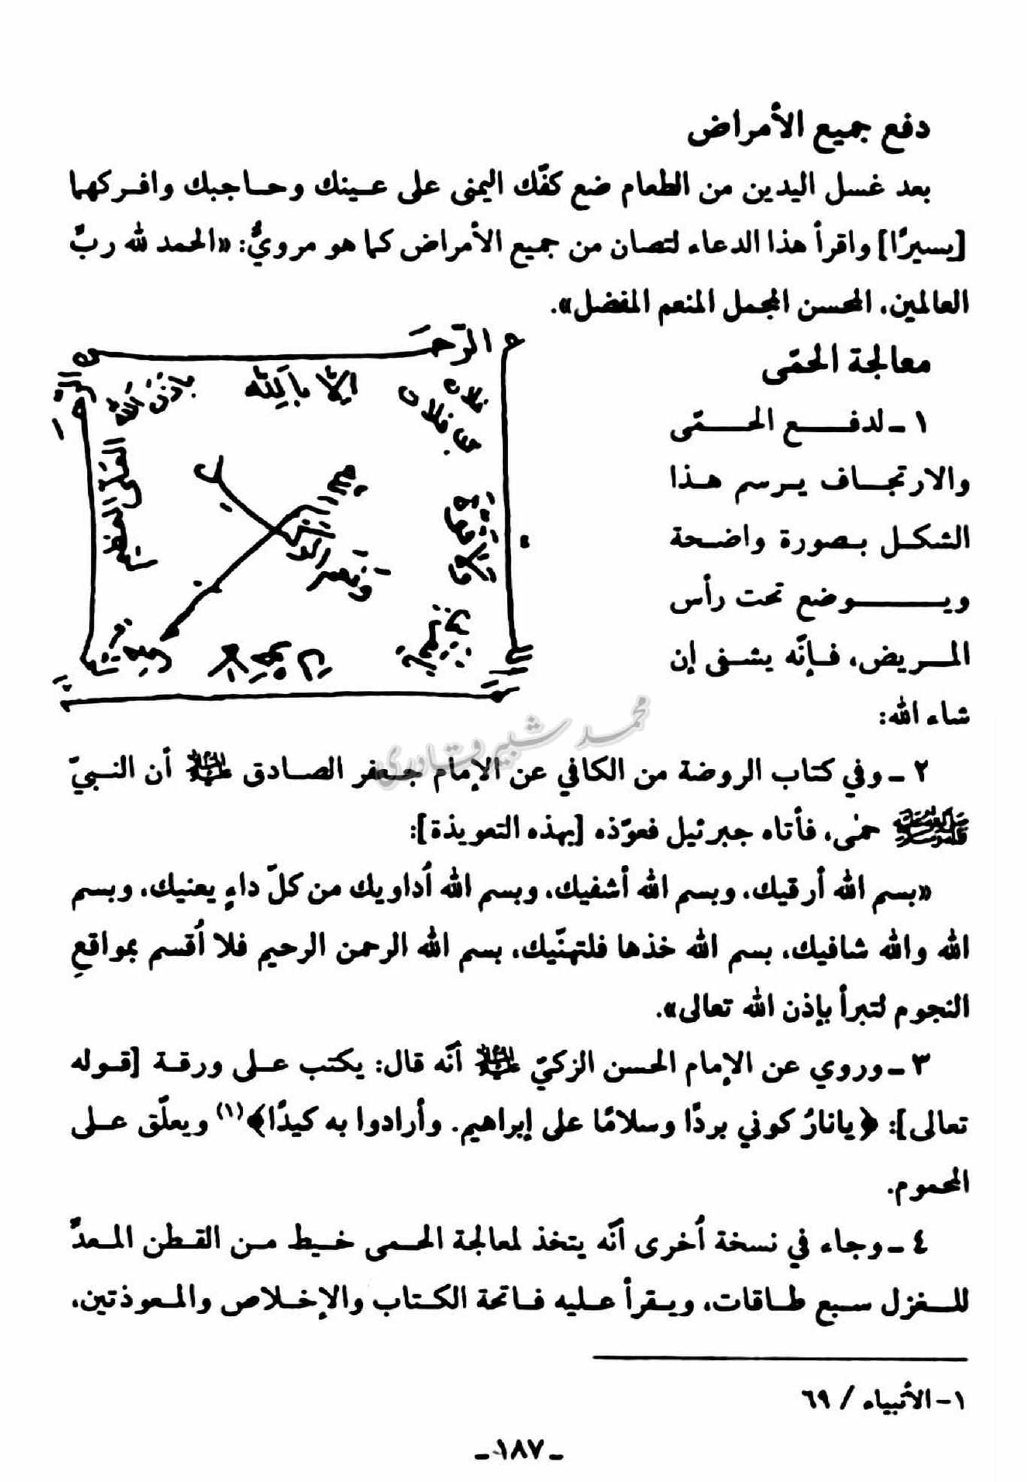 دفع جميع الأمراض
بعد غسل اليدين من الطعام ضع كفّك اليمنى على عينك وحاجبك وافركهما
[يسيرًا] واقرأ هذا الدعاء لتصان من جميع الأمراض كما هو مرويٌّ: «الحمد لله ربِّ
العالمين، المحسن المجمل المنعم المفضل».
معالجة الحمّى
١ - لدفع الحمّى
والارتجاف يرسم هذا
الشكل بصورة واضحة
ويوضع تحت رأس
المريض، فإنّه يشفى إن
شاء الله:
الرّحمـ
إلّا بالله
بإذن الله
فلان
بن فلان
العليّ العظيم
محمد شبير قادري
٢ - وفي كتاب الروضة من الكافي عن الإمام جعفر الصادق عليه السلام أن النبيّ
صلى الله عليه وآله وسلم حمى، فأتاه جبرئيل فعوّذه [بهذه التعويذة]:
«بسم الله أرقيك، وبسم الله أشفيك، وبسم الله أُداويك من كلّ داءٍ يعنيك، وبسم
الله والله شافيك، بسم الله خذها فلتهنّيك، بسم الله الرحمن الرحيم فلا اُقسم بمواقعِ
النجوم لتبرأ بإذن الله تعالى».
٣ - وروي عن الإمام الحسن الزكيّ عليه السلام أنّه قال: يكتب على ورقة [قوله
تعالى]: ﴿يانارُ كوني بردًا وسلامًا على إبراهيم. وأرادوا به كيدًا﴾(١) ويعلّق على
المحموم.
٤ - وجاء في نسخة اُخرى أنّه يتخذ لمعالجة الحمى خيط من القطن المعدِّ
للغزل سبع طاقات، ويقرأ عليه فاتحة الكتاب والإخلاص والمعوذتين،
١ - الأنبياء / ٦٩
- ١٨٧ -